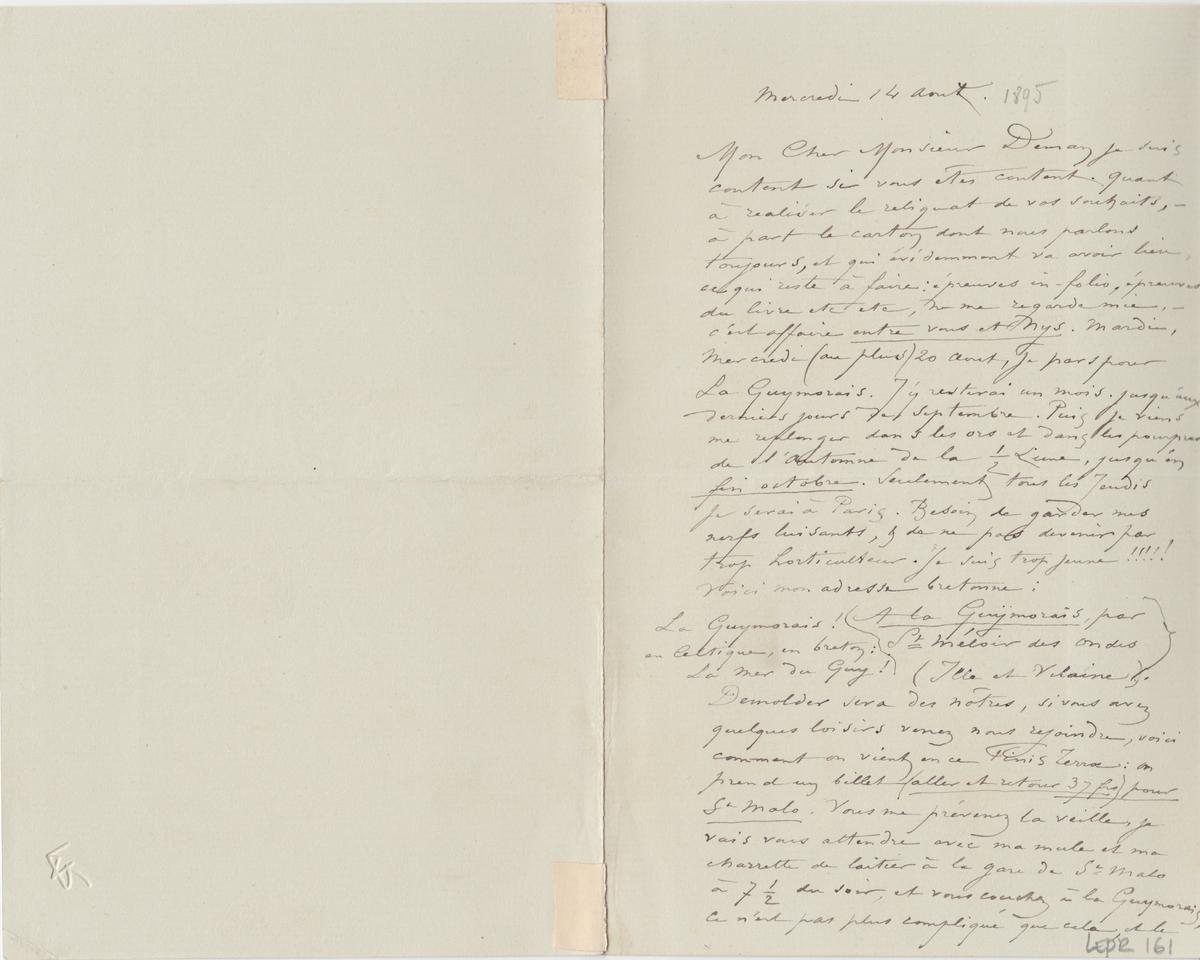 Mercredi 14 Aout. 1895
Mon Cher Monsieur Deman je suis
content si vous etes content. Quant
à realiser le reliquat de vos souhaits, –
à part le carton dont nous parlons
toujours, et qui évidemment va avoir lieu,
ce qui reste à faire : épreuves in-folio, épreuves
du livre etc etc, ne me regarde mie, –
c'est affaire entre vous et Nys. Mardi,
Mercredi (au plus) 20 Aout, je pars pour
La Guymorais. J'y resterai un mois. jusqu'aux
derniers jours de Septembre. Puis je viens
me replonger dans les ors et dans les pourpres
de l'Automne de la ½ Lune, jusqu'en
fin octobre. Seulement tous les Jeudis
je serai à Paris. Besoin de garder mes
nerfs luisants, & de ne pas devenir par
trop horticulteur. Je suis trop jeune !!!!!
Voici mon adresse bretonne :
La Guymorais ! (A la Guymorais, par
en Celtique, en breton : St Méloir des ondes
La Mer du Guy ! ) (Ille et Vilaine).
Demolder sera des nôtres, si vous avez
quelques loisirs venez nous rejoindre, voici
comment on vient en ce Finis Terrae : on
prend un billet (aller et retour 37 frs) pour
St Malo. Vous me prévenez la veille, je
vais vous attendre avec ma mule et ma
charrette de laitier à la gare de St Malo
à 7 ½ du soir, et vous couchez à la Guymorais,
Ce n'est pas plus compliqué que cela, et le
LEpR 161